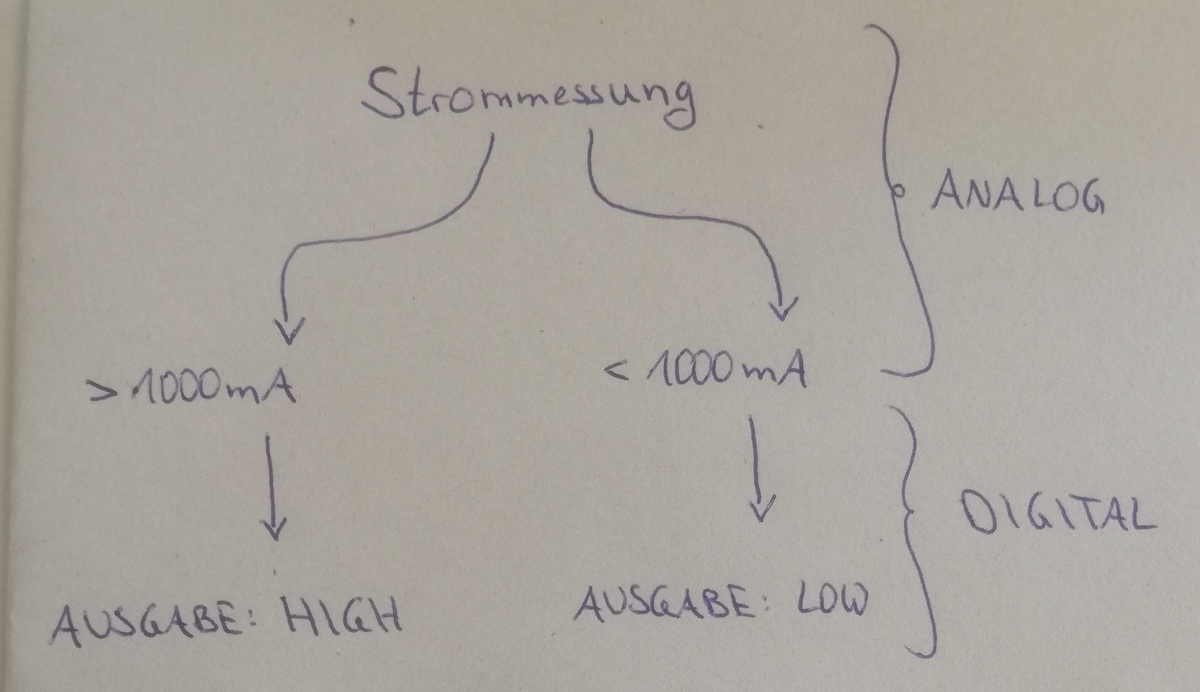 Strommessung
ANALOG
> 1000mA
< 1000mA
DIGITAL
AUSGABE: HIGH
AUSGABE: LOW